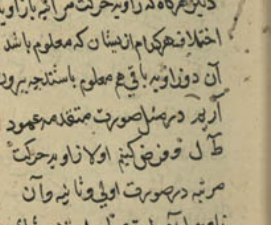 دیگر هرگاه که زاویه حرکت مرئی با زاویه
اختلاف هرکدام از بیشان که معلوم باشد
آن دو زاویه باقی هم معلوم باشند چه بیرون
آریم در مثل صورت متقدمه عمود
ط ل و فرض کنیم اولا زاویه حرکت
مرئیه در صورت اولی و ثانیه و آن